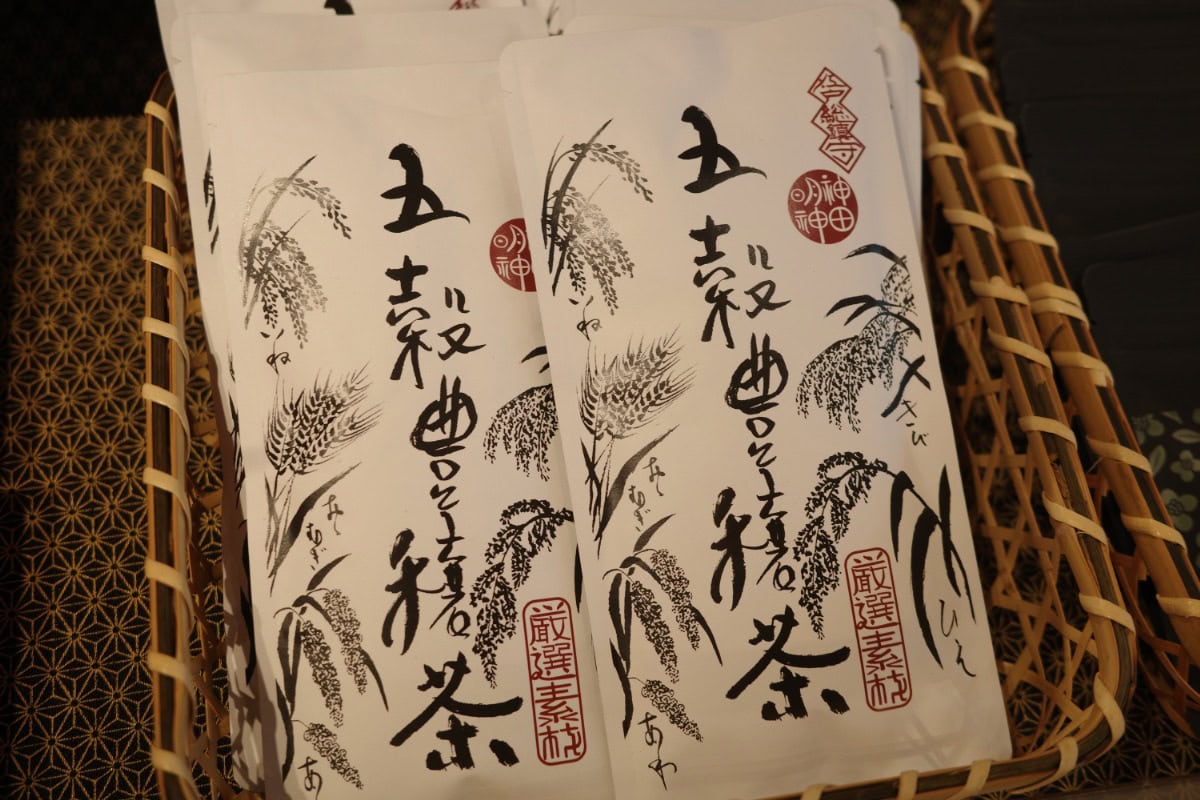 五穀豊穣茶
明神
いね
おおむぎ
あ
厳選素材
江戸総鎮守
神田
明神
五穀豊穣茶
いね
おおむぎ
あわ
きび
ひえ
厳選素材